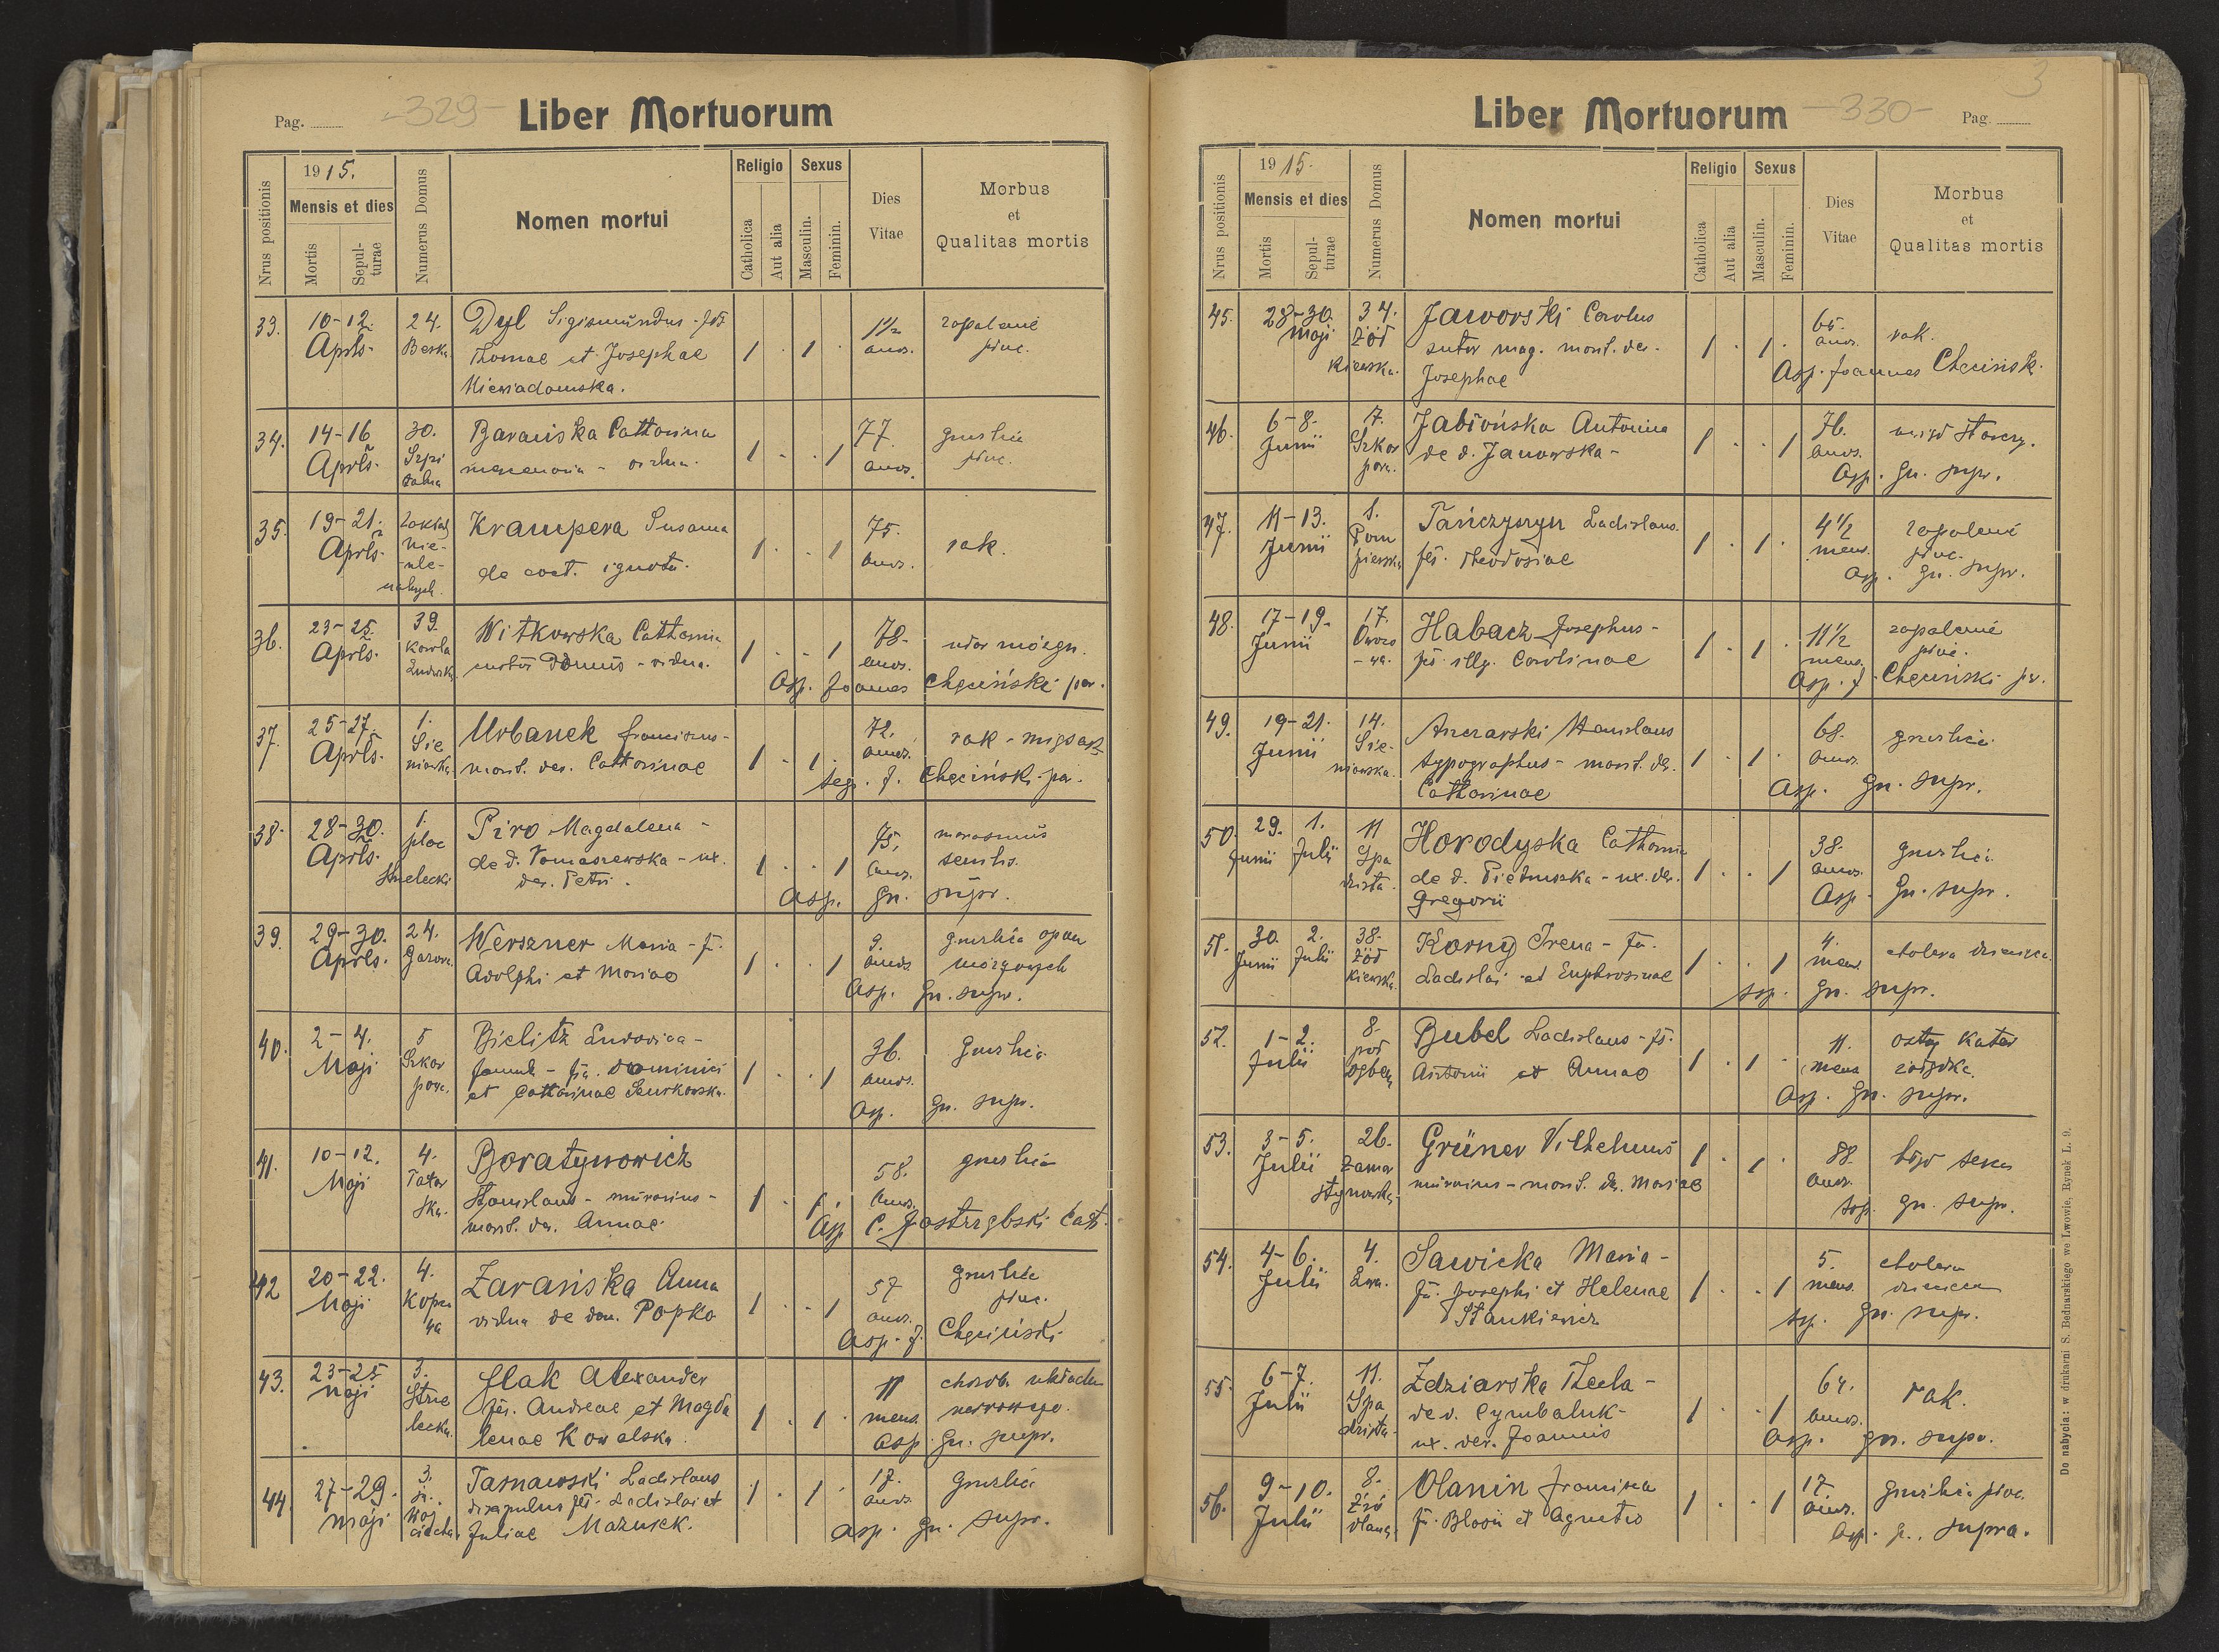 Pag. -329- Liber Mortuorum
Nrus positionis
1915.
Mensis et dies
Mortis
Sepulturae
Numerus Domus
Nomen mortui
Religio
Catholica
Aut alia
Sexus
Masculin.
Feminin.
Dies
Vitae
Morbus
et
Qualitas mortis
33. 10-12. 24. Dyl Sigismundus
Aprls. Thomae et Josephae 1 . 1 . 1½ anor. zapalenie płuc.
Niewiadomska.
34. 14-16 30. Barańska Catharina 77. gruźlica
Aprls. Szpi vidua. 1 . . 1 anor. płuc.
talna
35. 19-21. Zakład Krampera Susanna 75.
Aprls. nie- de coet. ignota. 1 . . 1 anor. rak.
ule-
czalnych.
36. 23-25. 39. Witkowska Catharina 78. udar mózgu.
Aprls. Karola custos domus - vidua. 1 . . 1 anor.
Ludwika Asp. Joannes Chęciński par.
37. 25-27. 1. Urbanek Franciscus - 72. rak
Aprls. Sie mart. der. Catharinae 1 . 1 . anor.
niawska J. Chęciński par.
38. 28-30. 1. Piro Magdalena - 75. marasmus
Aprls. plac de d. Tomaszewska - ux. 1 . . 1 anor. senilis.
Strzelecki der. Petri. Asp. gn. supr.
39. 29-30. 24. Werszner Maria - fa. 9. gruźlica opon
Aprls. Gazowa Adolphi et Mariae 1 . . 1 anor. mózgowych
Asp. gn. supr.
40. 2-4. 5 Bielitz Ludovica - 36. gruźlica
Maji Szkar famula - fia. Dominici 1 . . 1 anor.
powa. et Catharinae Asp. gn. supr.
41. 10-12. 4. Boratynowicz 58. gruźlica
Maji Tatar Stanislaus - murarius - 1 . 1. anor.
ska. mart. der. Annae. Asp. C. Jastrzębski Cath.
42 20-22. 4. Zarańska Anna 57 gruźlica
Maji Koper vidua de dom. Popko 1 . . 1 anor. płuc.
ska Asp. J. Chęciński
43. 23-25 3. Hak Alexander 11 chorob. układu
Maji Strze fil. Andreae et Magda 1 . 1 . mens. nerwowego.
lecka. lenae Kowalska. Asp. gn. supr.
44. 27-29. 3. Tarnawski Ladislaus 17. gruźlica
Maji św. discipulus fil. Ladislai et 1 . 1 . anor.
Woj
ciecha Juliae Mazurek. Asp. gn. supr.
Liber Mortuorum -330- Pag. 3
Nrus positionis
1915.
Mensis et dies
Mortis
Sepulturae
Numerus Domus
Nomen mortui
Religio
Catholica
Aut alia
Sexus
Masculin.
Feminin.
Dies
Vitae
Morbus
et
Qualitas mortis
45. 28-30. 34. Jaworski Carolus 65. rak.
Maji Żół sutor mag. mart. der. 1 . 1 . anor.
kiewska. Josephae Asp. Joannes Chęciński.
46. 6-8. 7. Jabłońska Antonina 76. uwiąd starczy.
Junii Szkar de d. Janowska - 1 . . 1 anor.
powa. Asp. gn. supr.
47. 11-13. 1. Tańczyszyn Ladislaus. 4½ zapalenie
Junii Pom fil. Theodosiae 1 . 1 . mens. płuc.
pierska Asp. gn. supr.
48. 17-19. 17. Habacz Josephus - 11½ zapalenie
Junii Owoco fil. illg. Carolinae 1 . 1 . mens. płuc.
-wa. Asp. J. Chęciński par.
49. 19-21. 14. Stanislaus 68. gruźlica
Junii Sie- typographus - mart. der. 1 . 1 . anor.
niawska. Catharinae Asp. gn. supr.
50. 29. 1. 11 Horodyska Catharina 38. gruźlica
Junii Julii Spa de d. - ux. der. 1 . . 1 anor.
dzista. Gregorii Asp. gn. supr.
51. 30. 2. 38. Korny Irena - fa. 4. cholera dziecięca.
Junii Julii Żół Ladislai et Euphrosinae 1 . . 1 mens.
kiewska. Asp. gn. supr.
52. 1-2. 8. Bubel Ladislaus - fil. 11. ostry katar
Julii pod Antonii et Annae 1 . 1 . mens. żołądka.
dębem Asp. gn. supr.
53. 3-5. 26. Grüner Vilhelmus 88. Uwiąd
Julii Zamar murarius - mart. der. Mariae 1 . 1 . anor.
stynowska. Asp. gn. supr.
54. 4-6. 4. Sawicka Maria - 5. cholera
Julii fa. Josephi et Helenae 1 . . 1 mens. dziecięca
Stankiewicz Asp. gn. supr.
55. 6-7. 11. Zdziarska Thecla - 64. rak.
Julii Spa de d. Cymbaluk - 1 . . 1 anor.
dzista. ux. der. Joannis Asp. gn. supr.
56. 9-10. 8. Olanin Francisca 17 gruźlica płuc.
Julii Źró fa. Blasii et Agnetis 1 . . 1 anor.
dlana. Asp. g. supra.
Do nabycia: w drukarni S. Bednarskiego we Lwowie, Rynek L. 9.